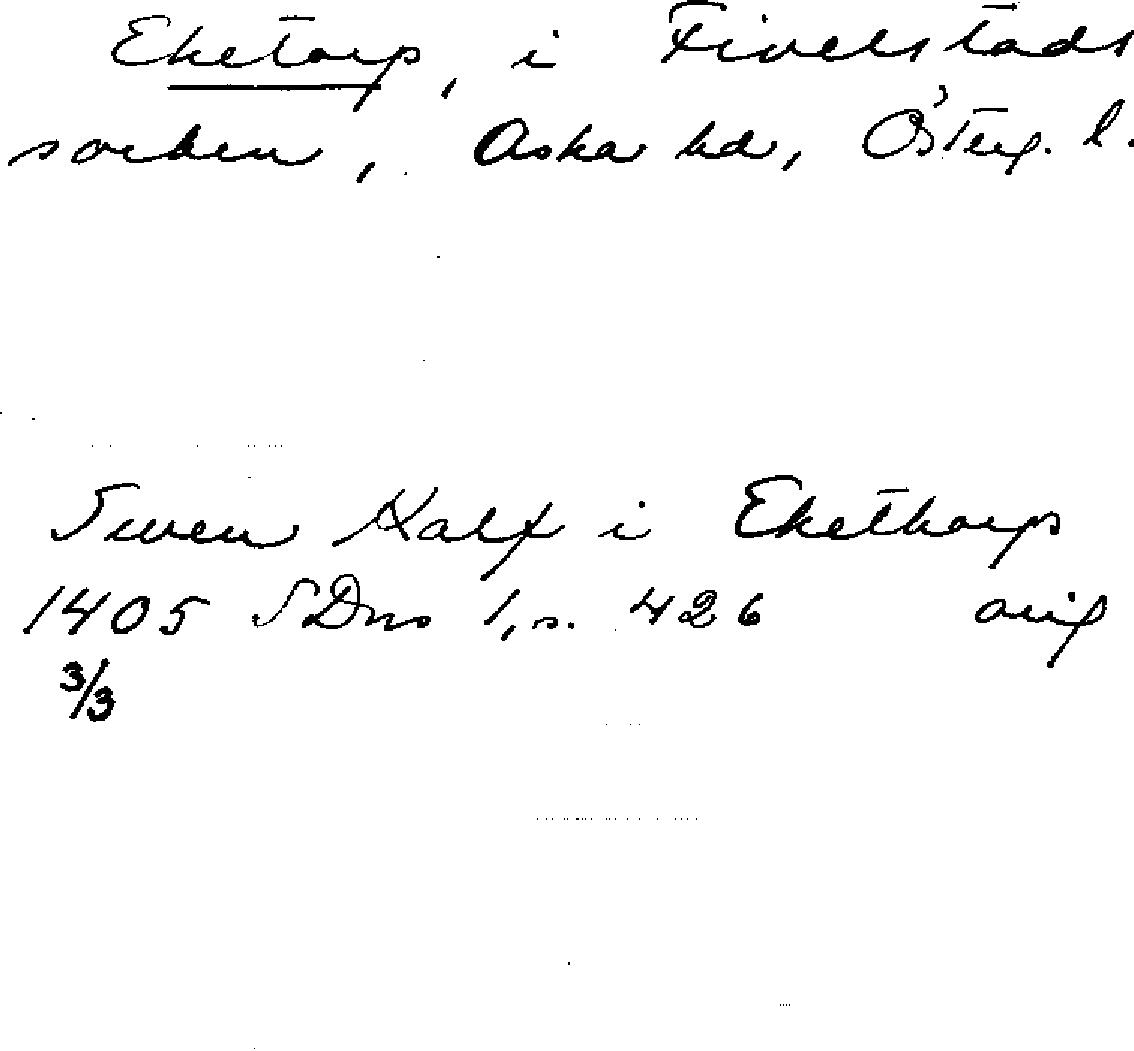 Eketorp, i Fivelstads
socken, Aska hd, Österg. l.
Swen Kalf i Ekethorp
1405 SDns 1, s. 426 orig
3/3